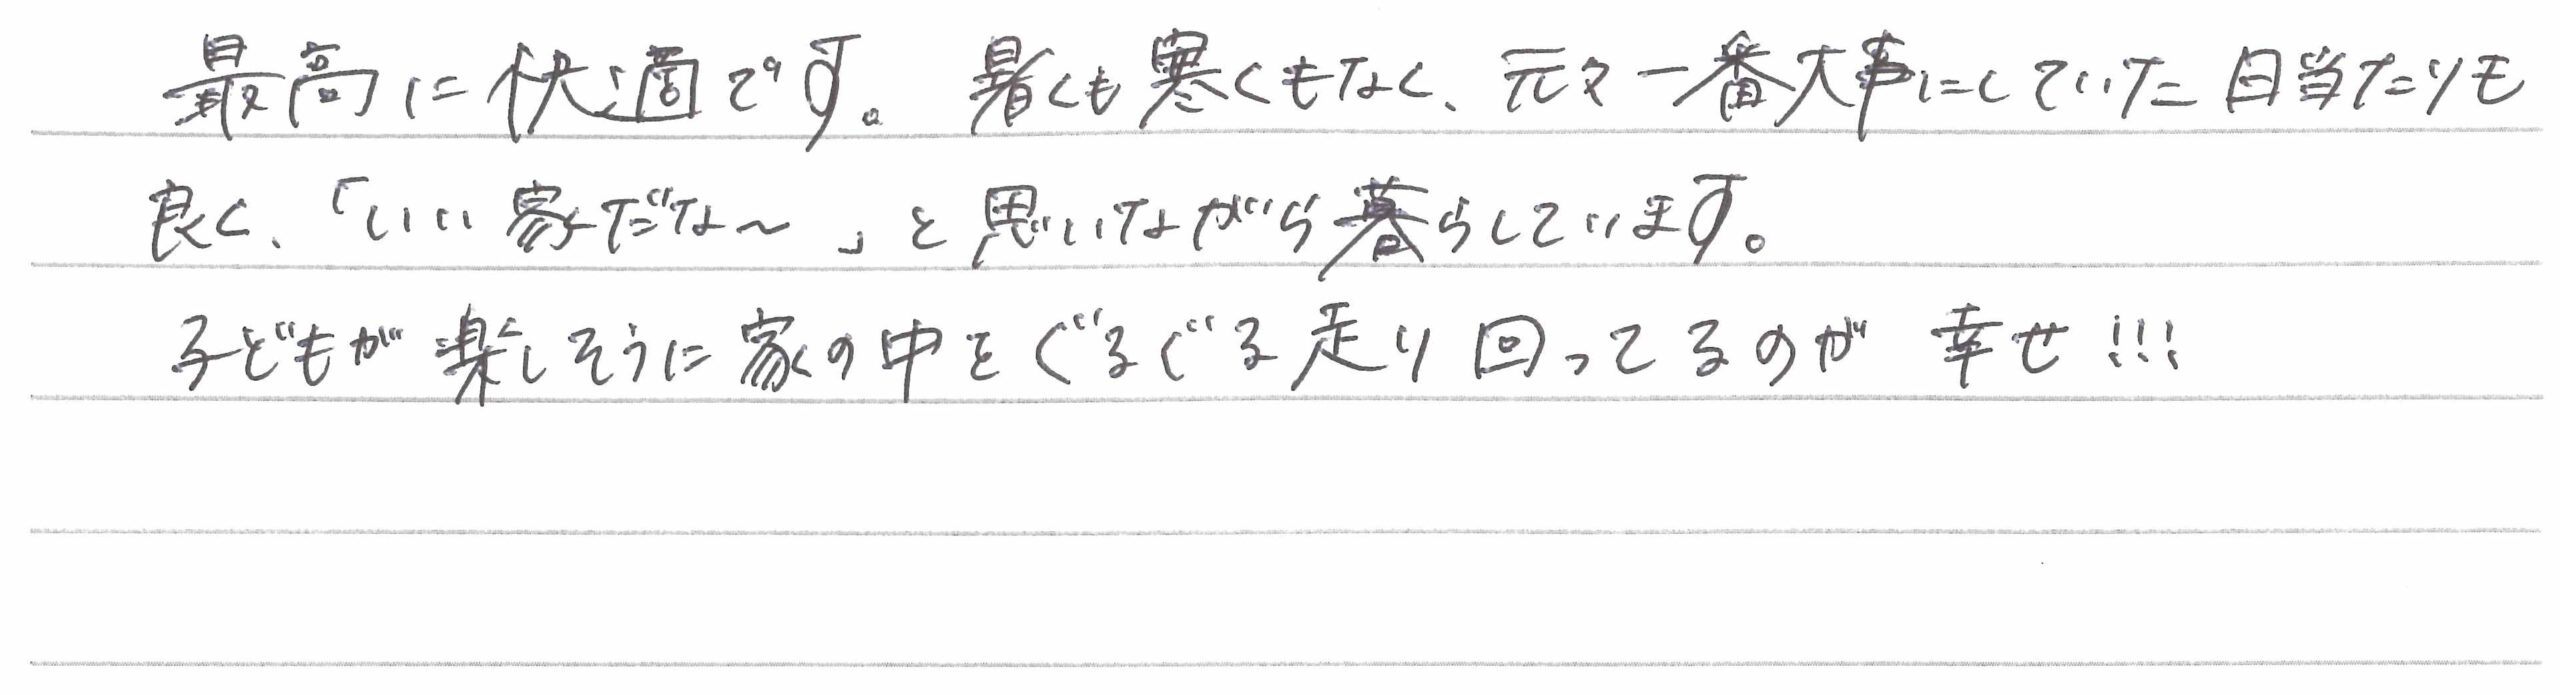 最高に快適です。暑くも寒くもなく、元々一番大事にしていた日当たりも
良く、「いい家だな〜」と思いながら暮らしています。
子どもが楽しそうに家の中をぐるぐる走り回ってるのが幸せ!!!